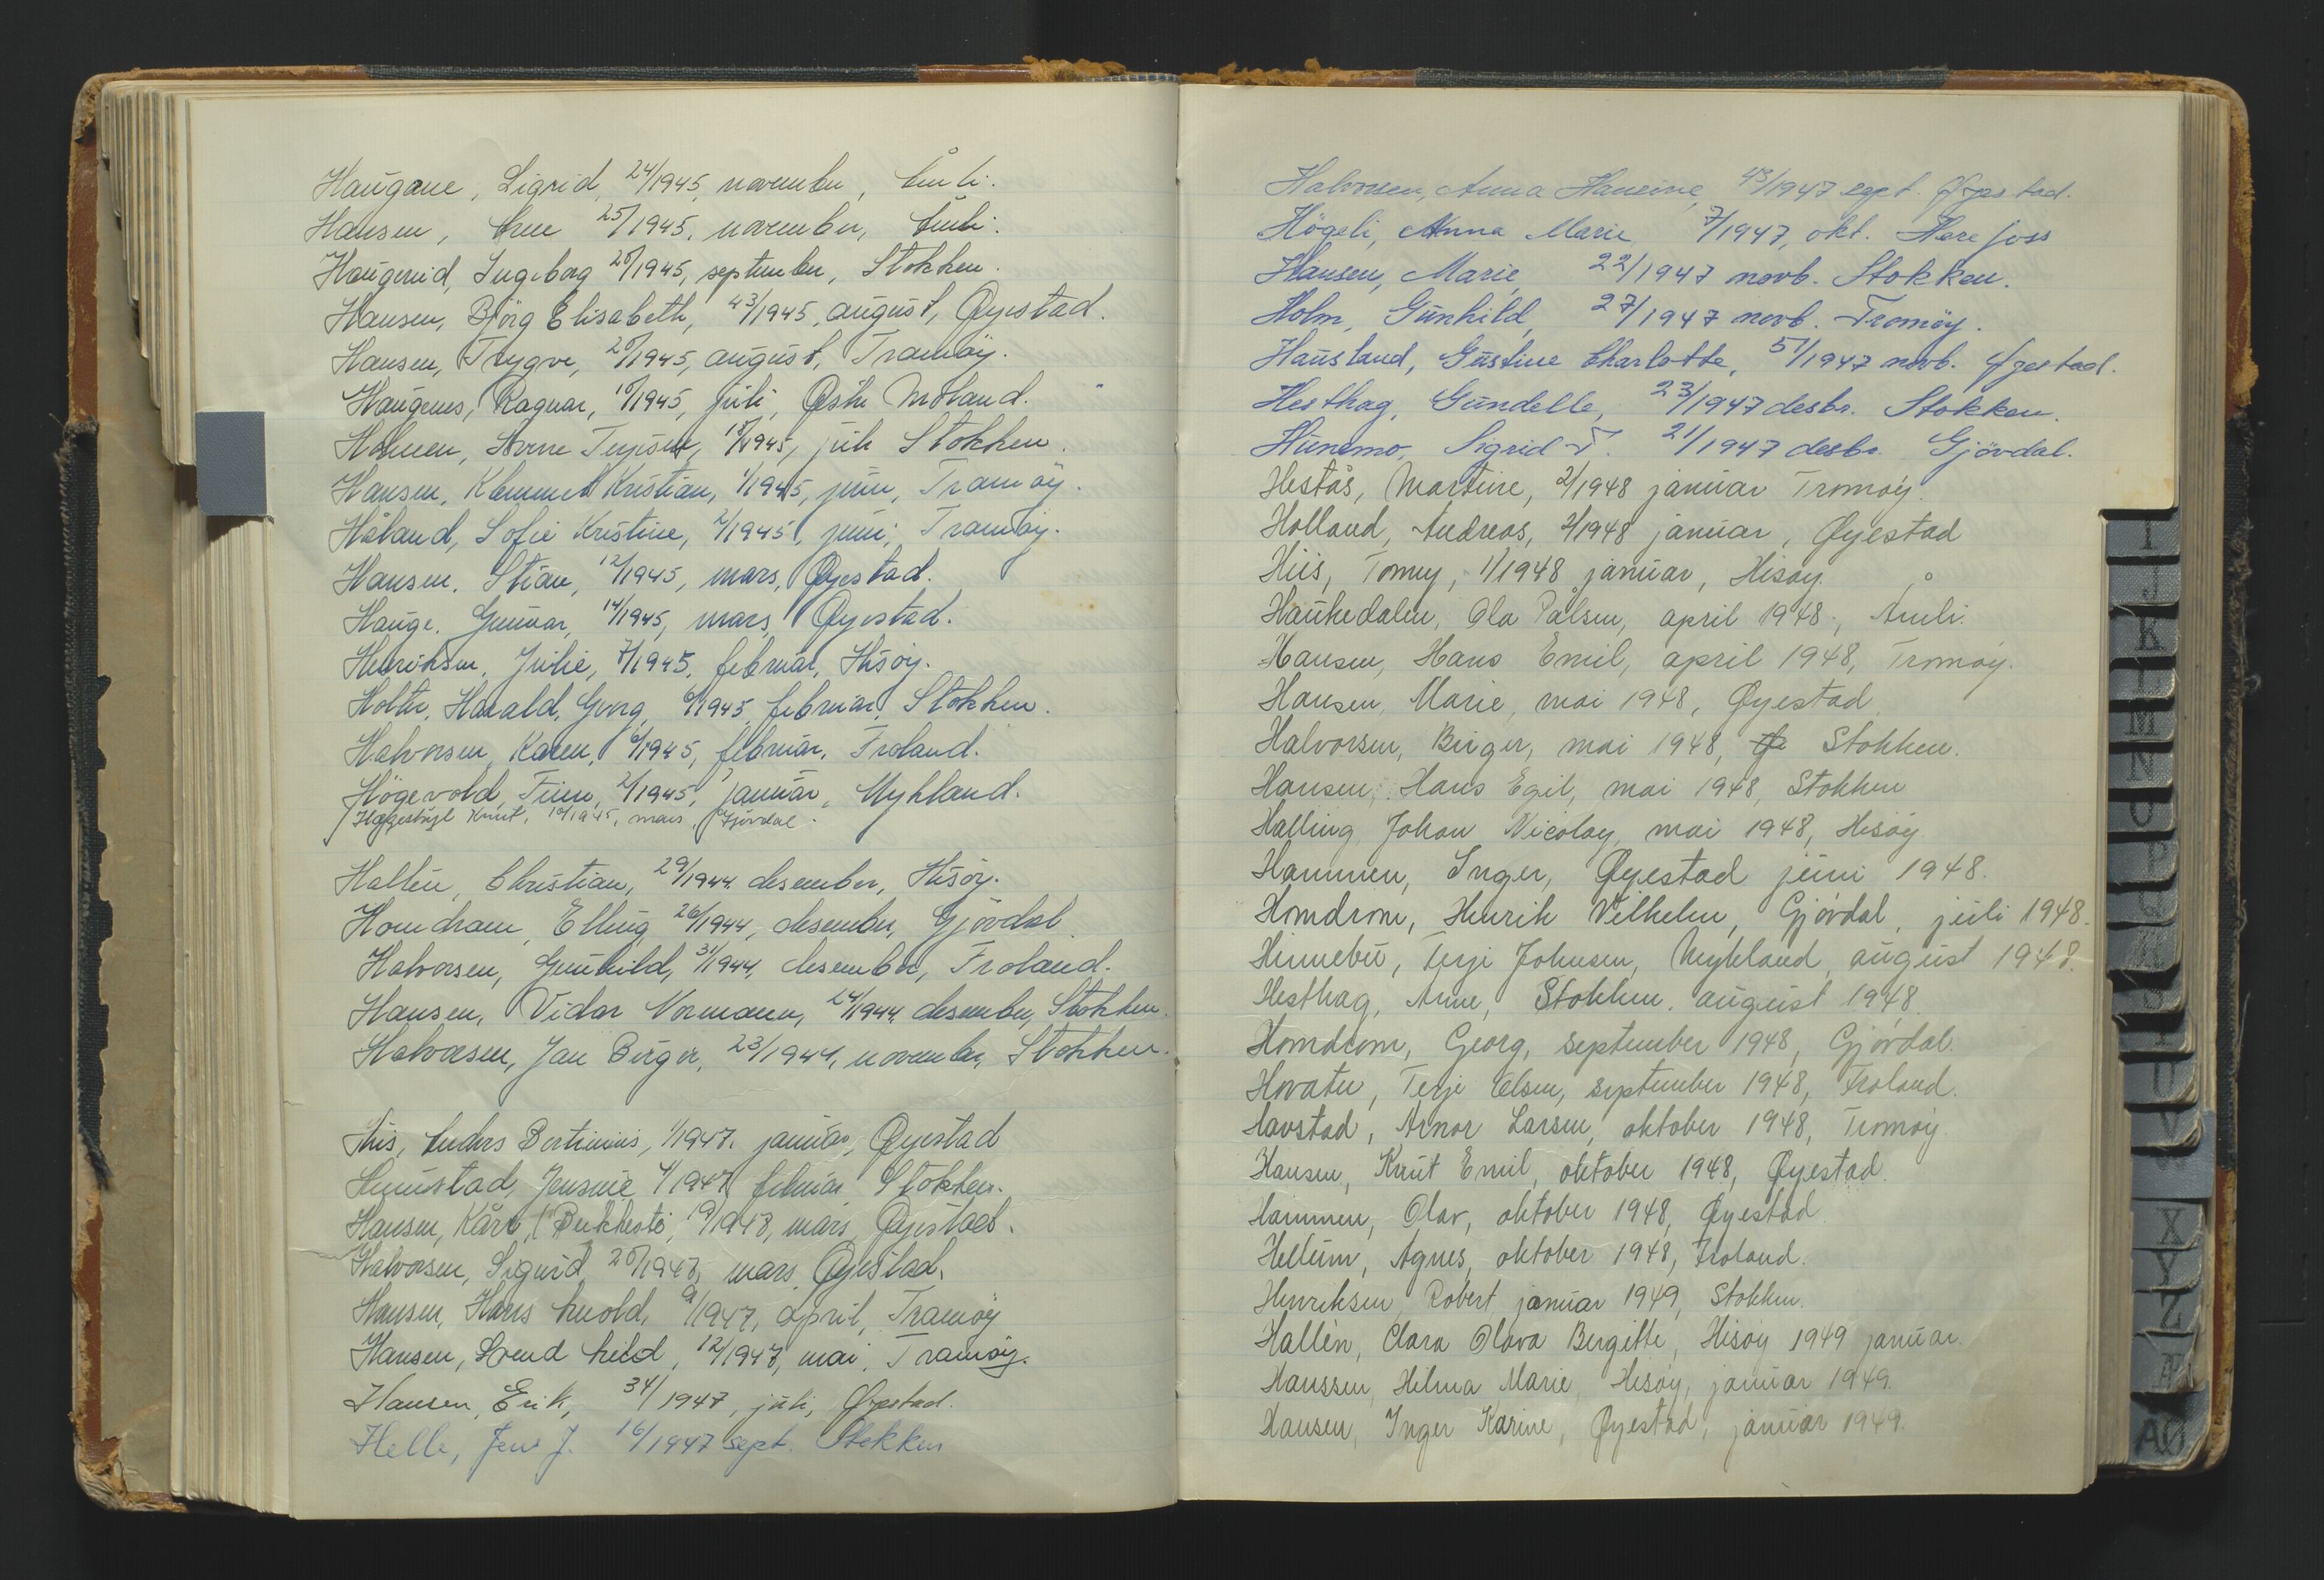 Haugane, Sigrid, 24/1945, november, Åmli.
Hansen, 25/1945, november, Åmli.
Haugerud, Ingeborg 20/1945, september, Stokken.
Hansen, Bjørg Elisabeth, 43/1945, august, Øyestad.
Hansen, Trygve, 20/1945, august, Tromöy.
Haugenes, Ragnar, 10/1945, juli, Østre Moland.
Holmen, 18/1945, juli Stokken.
Hansen, Klemmet Kristian, 1/1945, juni, Tromöy.
Håland, Sofie Kristine, 2/1945, juni, Tromöy.
Hansen, Stian, 12/1945, mars, Øyestad.
Hauge, Gunnar, 14/1945, mars, Øyestad.
Henriksen, Julie, 7/1945, februar, Hisöy.
Holter, Harald, Georg, 6/1945, februar, Stokken.
Halvorsen, Karen, 6/1945, februar, Froland.
Högevold, Finn, 2/1945, januar, Mykland.
Heggestöyl Knut, 10/1945, mars, Gjövdal.
Hallén, Christian, 29/1944 desember, Hisöy.
Homdrom, Elling, 26/1944, desember, Gjövdal
Halvorsen, Gunhild, 31/1944, desember, Froland.
Hansen, Vidar Normann, 24/1944, desember, Stokken.
Halvorsen, Jan Birger, 23/1944, november, Stokken.
Hiis, Anders Bertinius, 1/1947. januar, Øyestad
Hunstad, Jensine 4/1947, februar Stokken.
Hansen, Kåre, 19/1947, mars, Øyestad.
Halvorsen, Sigurd 20/1947, mars Øyestad.
Hansen, Hans Arnold, 9/1947, april, Tromöy
Hansen, Svend 12/1947, mai, Tromöy.
Hansen, Erik, 34/1947, juli, Øyestad.
Helle, Jens J. 16/1947 sept. Stokken
Halvorsen, Anna Hansine, 43/1947 sept. Øyestad.
Högeli, Anna Marie, 7/1947, okt. Herefoss
Hansen, Marie, 22/1947 novb. Stokken.
Holm, Gunhild, 27/1947 novb. Tromöy.
Hausland, Gustine Charlotte, 51/1947 novb. Øyestad.
Hesthag, Gundelle, 23/1947 desbr. Stokken.
Hunemo, Sigrid T. 21/1947 desbr. Gjövdal.
Hestås, Martine, 2/1948 januar Tromøy.
Holland, Andreas, 2/1948 januar, Øyestad
Hiis, Tomy, 1/1948 januar, Hisøy.
Haukedalen, Ola Pålsen, april 1948, Åmli.
Hansen, Hans Emil, april 1948, Tromøy.
Hansen, Marie, mai 1948, Øyestad
Halvorsen, Birger, mai 1948, Stokken.
Hansen, Hans Egil, mai 1948, Stokken
Halling, Johan Nicolay, mai 1948, Hisøy
Hammen, Inger, Øyestad juni 1948.
Homdrom, Henrik Vilhelm, Gjövdal, juli 1948.
Hinnebu, Terje Johnsen, Mykland, august 1948.
Hesthag, Anne, Stokken, august 1948.
Homdrom, Georg, september 1948, Gjövdal.
Hovatn, Terje Olsen, september 1948, Froland.
Havstad, Arnor Larsen, oktober 1948, Tromøy.
Hansen, Knut Emil, oktober 1948, Øyestad.
Hammen, Olav, oktober 1948, Øyestad.
Hellum, Agnes, oktober 1948, Froland.
Henriksen, Robert, januar 1949, Stokken.
Hallén, Clara Olava Bergitte, Hisøy 1949 januar.
Hanssen, Helma Marie, Hisøy, januar 1949.
Hansen, Inger Karine, Øyestad, januar 1949.
I
J
K
L
M
N
O
P
Q
U
V
X
Y
Z
Æ
AØ